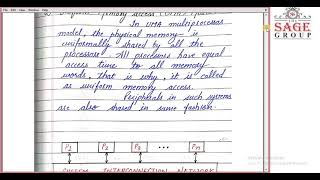 In UMA multiprocessor
model, the physical memory is
uniformally shared by all the
processors. All processors have equal
access time to all memory
words, that is why, it is called
as uniform memory access.
Peripherals in such systems
are also shared in same fashion.
P1 P2 P3 ... Pn
SYSTEM INTERCONNECTION NETWORK
SAGE
GROUP